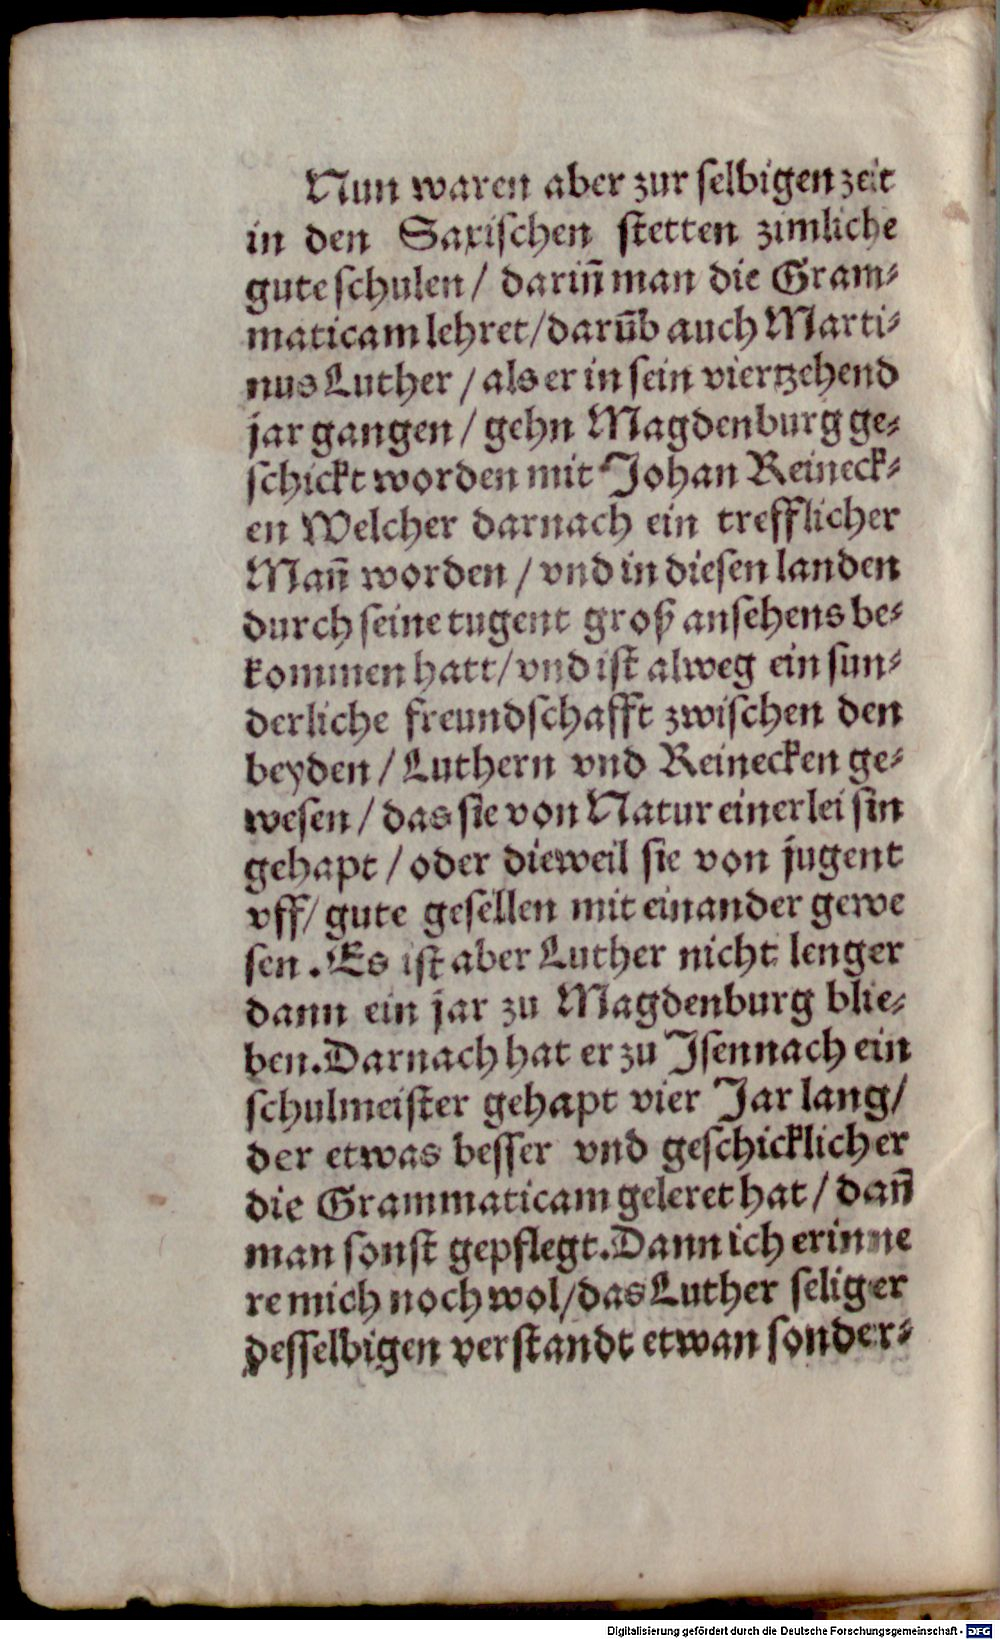 Nun waren aber zur selbigen zeit
in den Saxischen stetten zimliche
gute schulen / darin̄ man die Gram⸗
maticam lehret/darūb auch Marti⸗
nus Luther / als er in sein viertzehend
jar gangen / gehn Magdenburg ge⸗
schickt worden mit Johan Reineck⸗
en Welcher darnach ein trefflicher
Man̄ worden / vnd in diesen landen
durch seine tugent groß ansehens be⸗
kommen hatt/vnd ist alweg ein sun⸗
derliche freundschafft zwischen den
beyden / Luthern vnd Reinecken ge⸗
wesen / das sie von Natur einerlei sin
gehapt / oder dieweil sie von jugent
vff/ gute gesellen mit einander gewe
sen . Es ist aber Luther nicht lenger
dann ein jar zu Magdenburg blie⸗
ben. Darnach hat er zu Jsennach ein
schulmeister gehapt vier Jar lang/
der etwas besser vnd geschicklicher
die Grammaticam geleret hat / dan̄
man sonst gepflegt. Dann ich erinne
re mich noch wol/das Luther seliger
desselbigen verstandt etwan sonder⸗
Digitalisierung gefördert durch die Deutsche Forschungsgemeinschaft - DFG